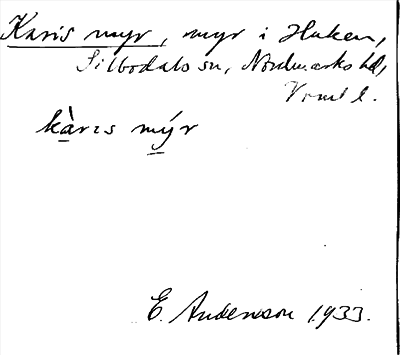 Karis myr, myr i Huken,
Silbodals sn, Nordmarks hd,
Vrml l.
kàrıs mýr
E. Andersson 1933.